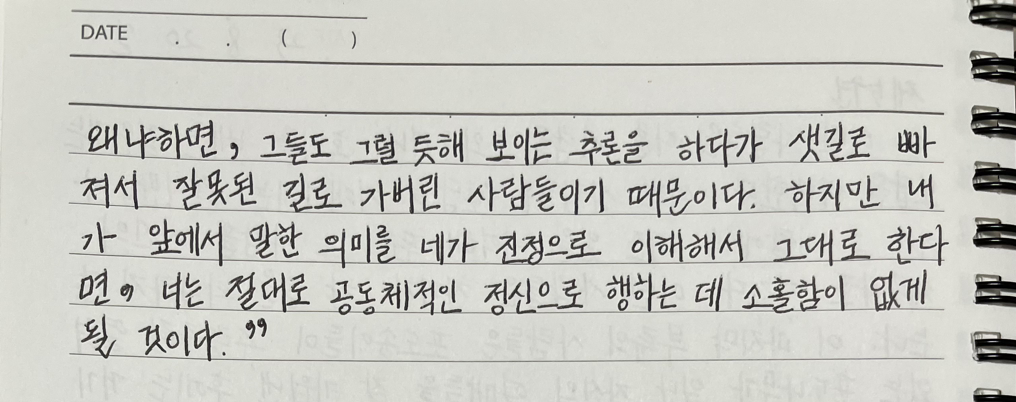 DATE . . ( )
왜냐하면, 그들도 그럴 듯해 보이는 추론을 하다가 샛길로 빠
져서 잘못된 길로 가버린 사람들이기 때문이다. 하지만 내
가 앞에서 말한 의미를 네가 진정으로 이해해서 그대로 한다
면, 너는 절대로 공동체적인 정신으로 행하는 데 소홀함이 없게
될 것이다.”